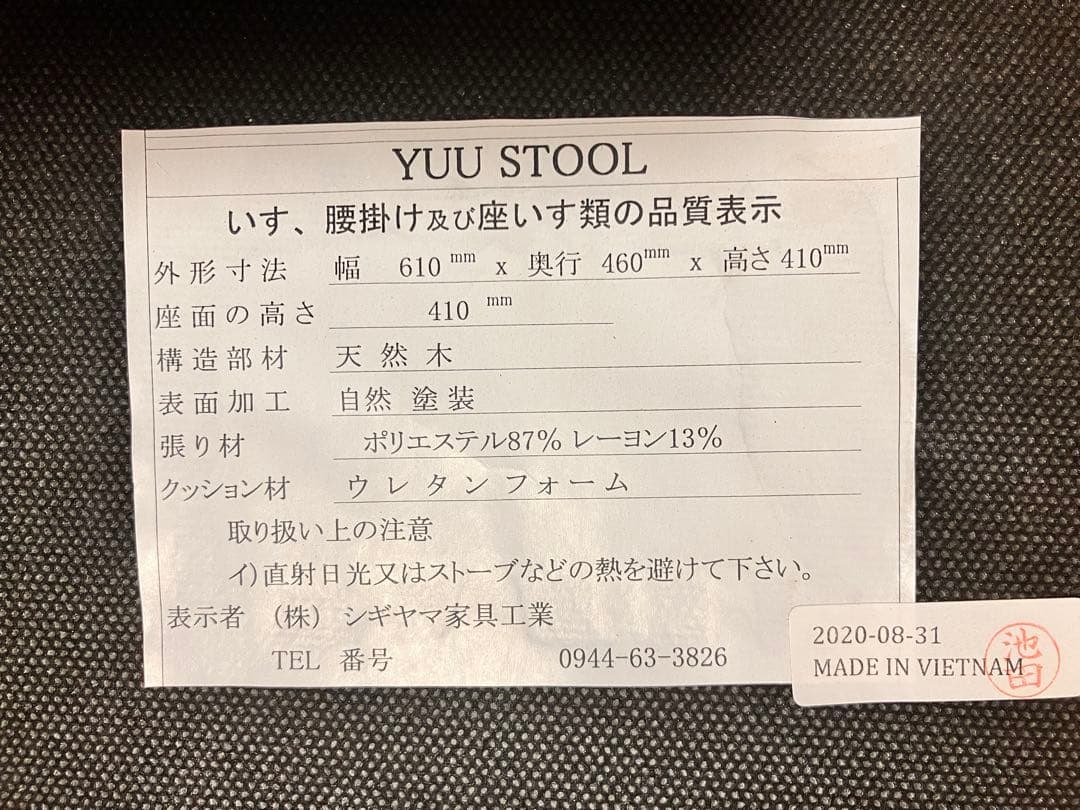 YUU STOOL
いす、腰掛け及び座いす類の品質表示
外形寸法 幅 610 mm x 奥行 460mm x 高さ 410mm
座面の高さ 410 mm
構造部材 天然木
表面加工 自然 塗装
張り材 ポリエステル87% レーヨン13%
クッション材 ウレタンフォーム
取り扱い上の注意
イ)直射日光又はストーブなどの熱を避けて下さい。
表示者 (株) シギヤマ家具工業
TEL 番号 0944-63-3826
2020-08-31
MADE IN VIETNAM
池田